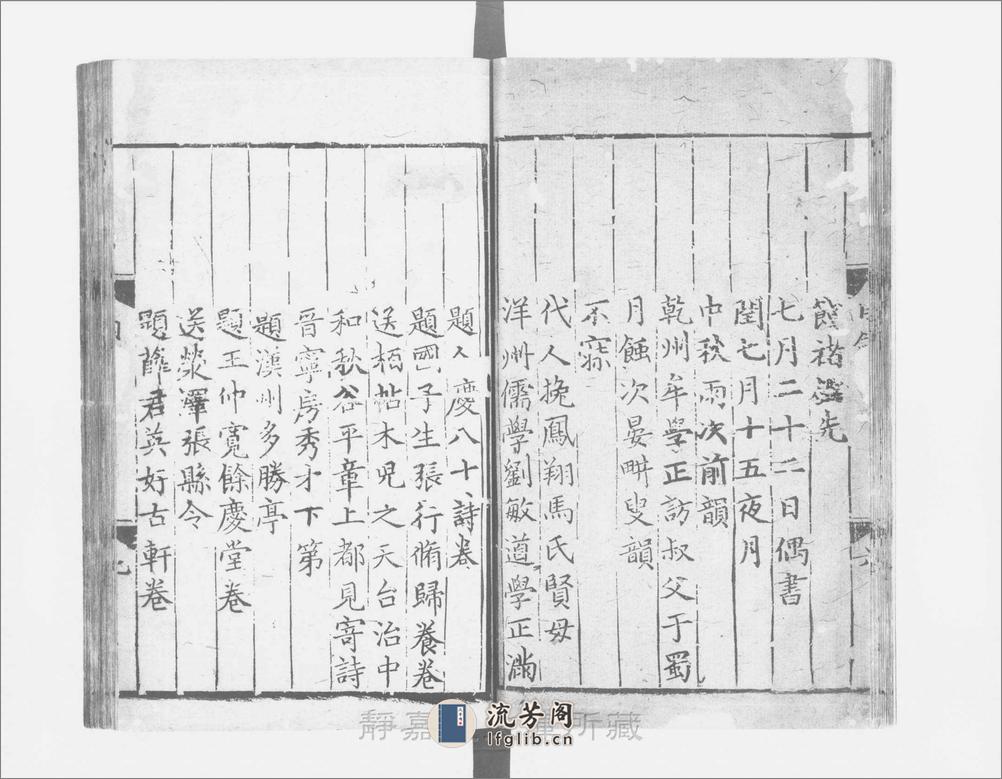 餽褚湛先
七月二十二日偶書
閏七月十五夜月
中秋雨次前韻
乾州牟學正訪叔父于蜀
月蝕次晏畊叟韻
不寐
代人挽鳳翔馬氏賢母
洋州儒學劉敏道學正滿
題人慶八十詩卷
題國子生張行脩歸養卷
送栢帖木兒之天台治中
和秋谷平章上都見寄詩
晉寧房秀才下第
題漢州多勝亭
題王仲寬餘慶堂卷
送滎澤張縣令
題薛君英好古軒卷
靜嘉 所藏
流芳阁
lfglib.cn